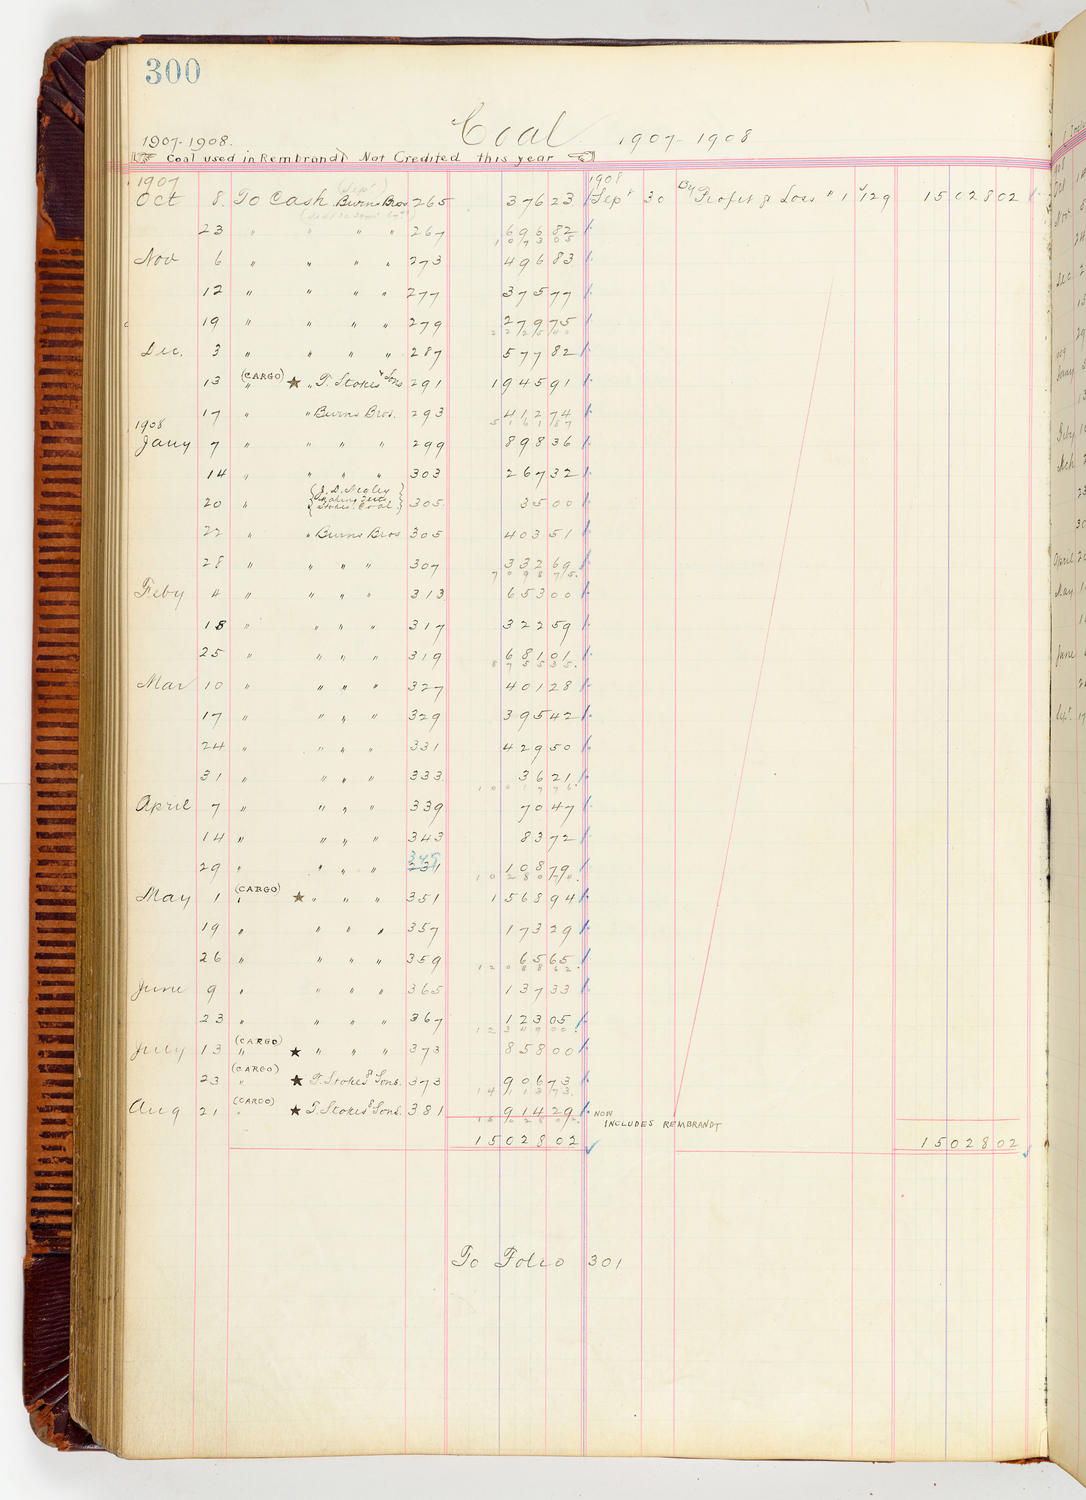 300
Coal 1907-1908
1907-1908.
Coal used in Rembrandt Not Credited this year
1907 1908
(Sept)
Oct 8. To Cash Burns Bros 265 376 23 Sept 30 By Profit & Loss " 1 129 15028 02
23 " " " " 267 696 82
1073 05
Nov 6 " " " " 273 496 83
12 " " " " 277 375 77
19 " " " " 279 279 75
2225 40
Dec. 3 " " " " 287 577 82
13 (CARGO) " ★ " T. Stokes & Sons 291 1945 91
17 " " Burns Bros. 293 412 74
5161 87
1908
Jany 7 " " " " 299 898 36
14 " " " " 303 267 32
20 " Stokes Coal 305 35 00
22 " " Burns Bros 305 403 51
28 " " " " 307 332 69
7098 75.
Feby 4 " " " " 313 653 00
18 " " " " 317 322 59
25 " " " " 319 681 01
8755 35.
Mar 10 " " " " 327 401 28
17 " " " " 329 395 42
24 " " " " 331 429 50
31 " " " " 333 36 21
10017 76.
April 7 " " " " 339 70 47
14 " " " " 343 83 72
349
29 " " " " 231 108 79
10280 74.
May 1 (CARGO) " ★ " " " 351 1568 94
19 " " " " 357 173 29
26 " " " " 359 65 65
12088 62.
June 9 " " " " 365 137 33
23 " " " " 367 123 05
12349 00.
July 13 (CARGO) " ★ " " " 373 858 00
23 (CARGO) " ★ T. Stokes & Sons. 373 906 73
14113 73.
Aug 21 (CARGO) " ★ T. Stokes & Sons. 381 914 29 NOW
INCLUDES REMBRANDT
15028 02.
15028 02 15028 02
To Folio 301